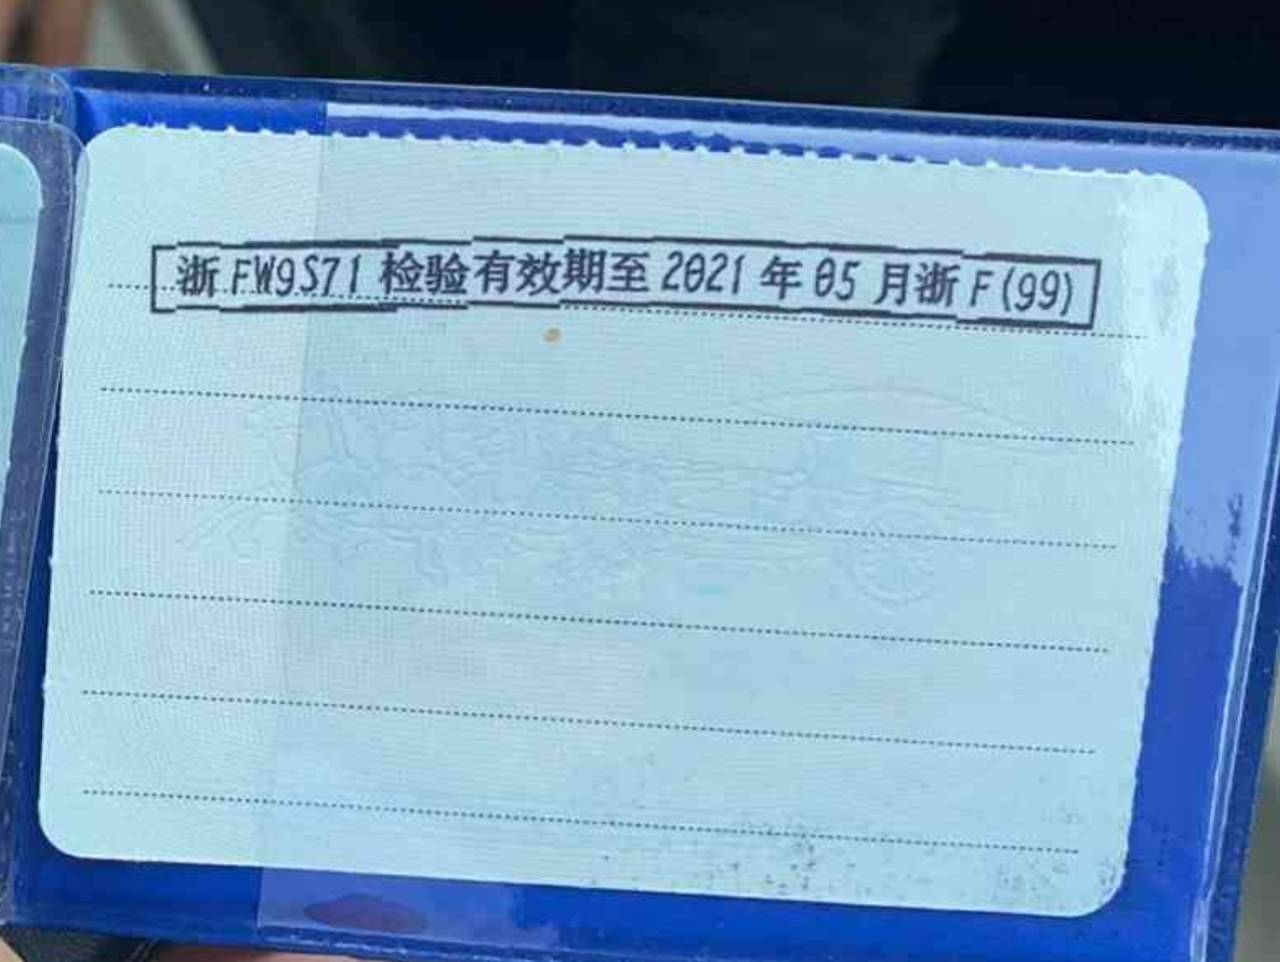 浙FW9S71检验有效期至2021年05月浙F(99)